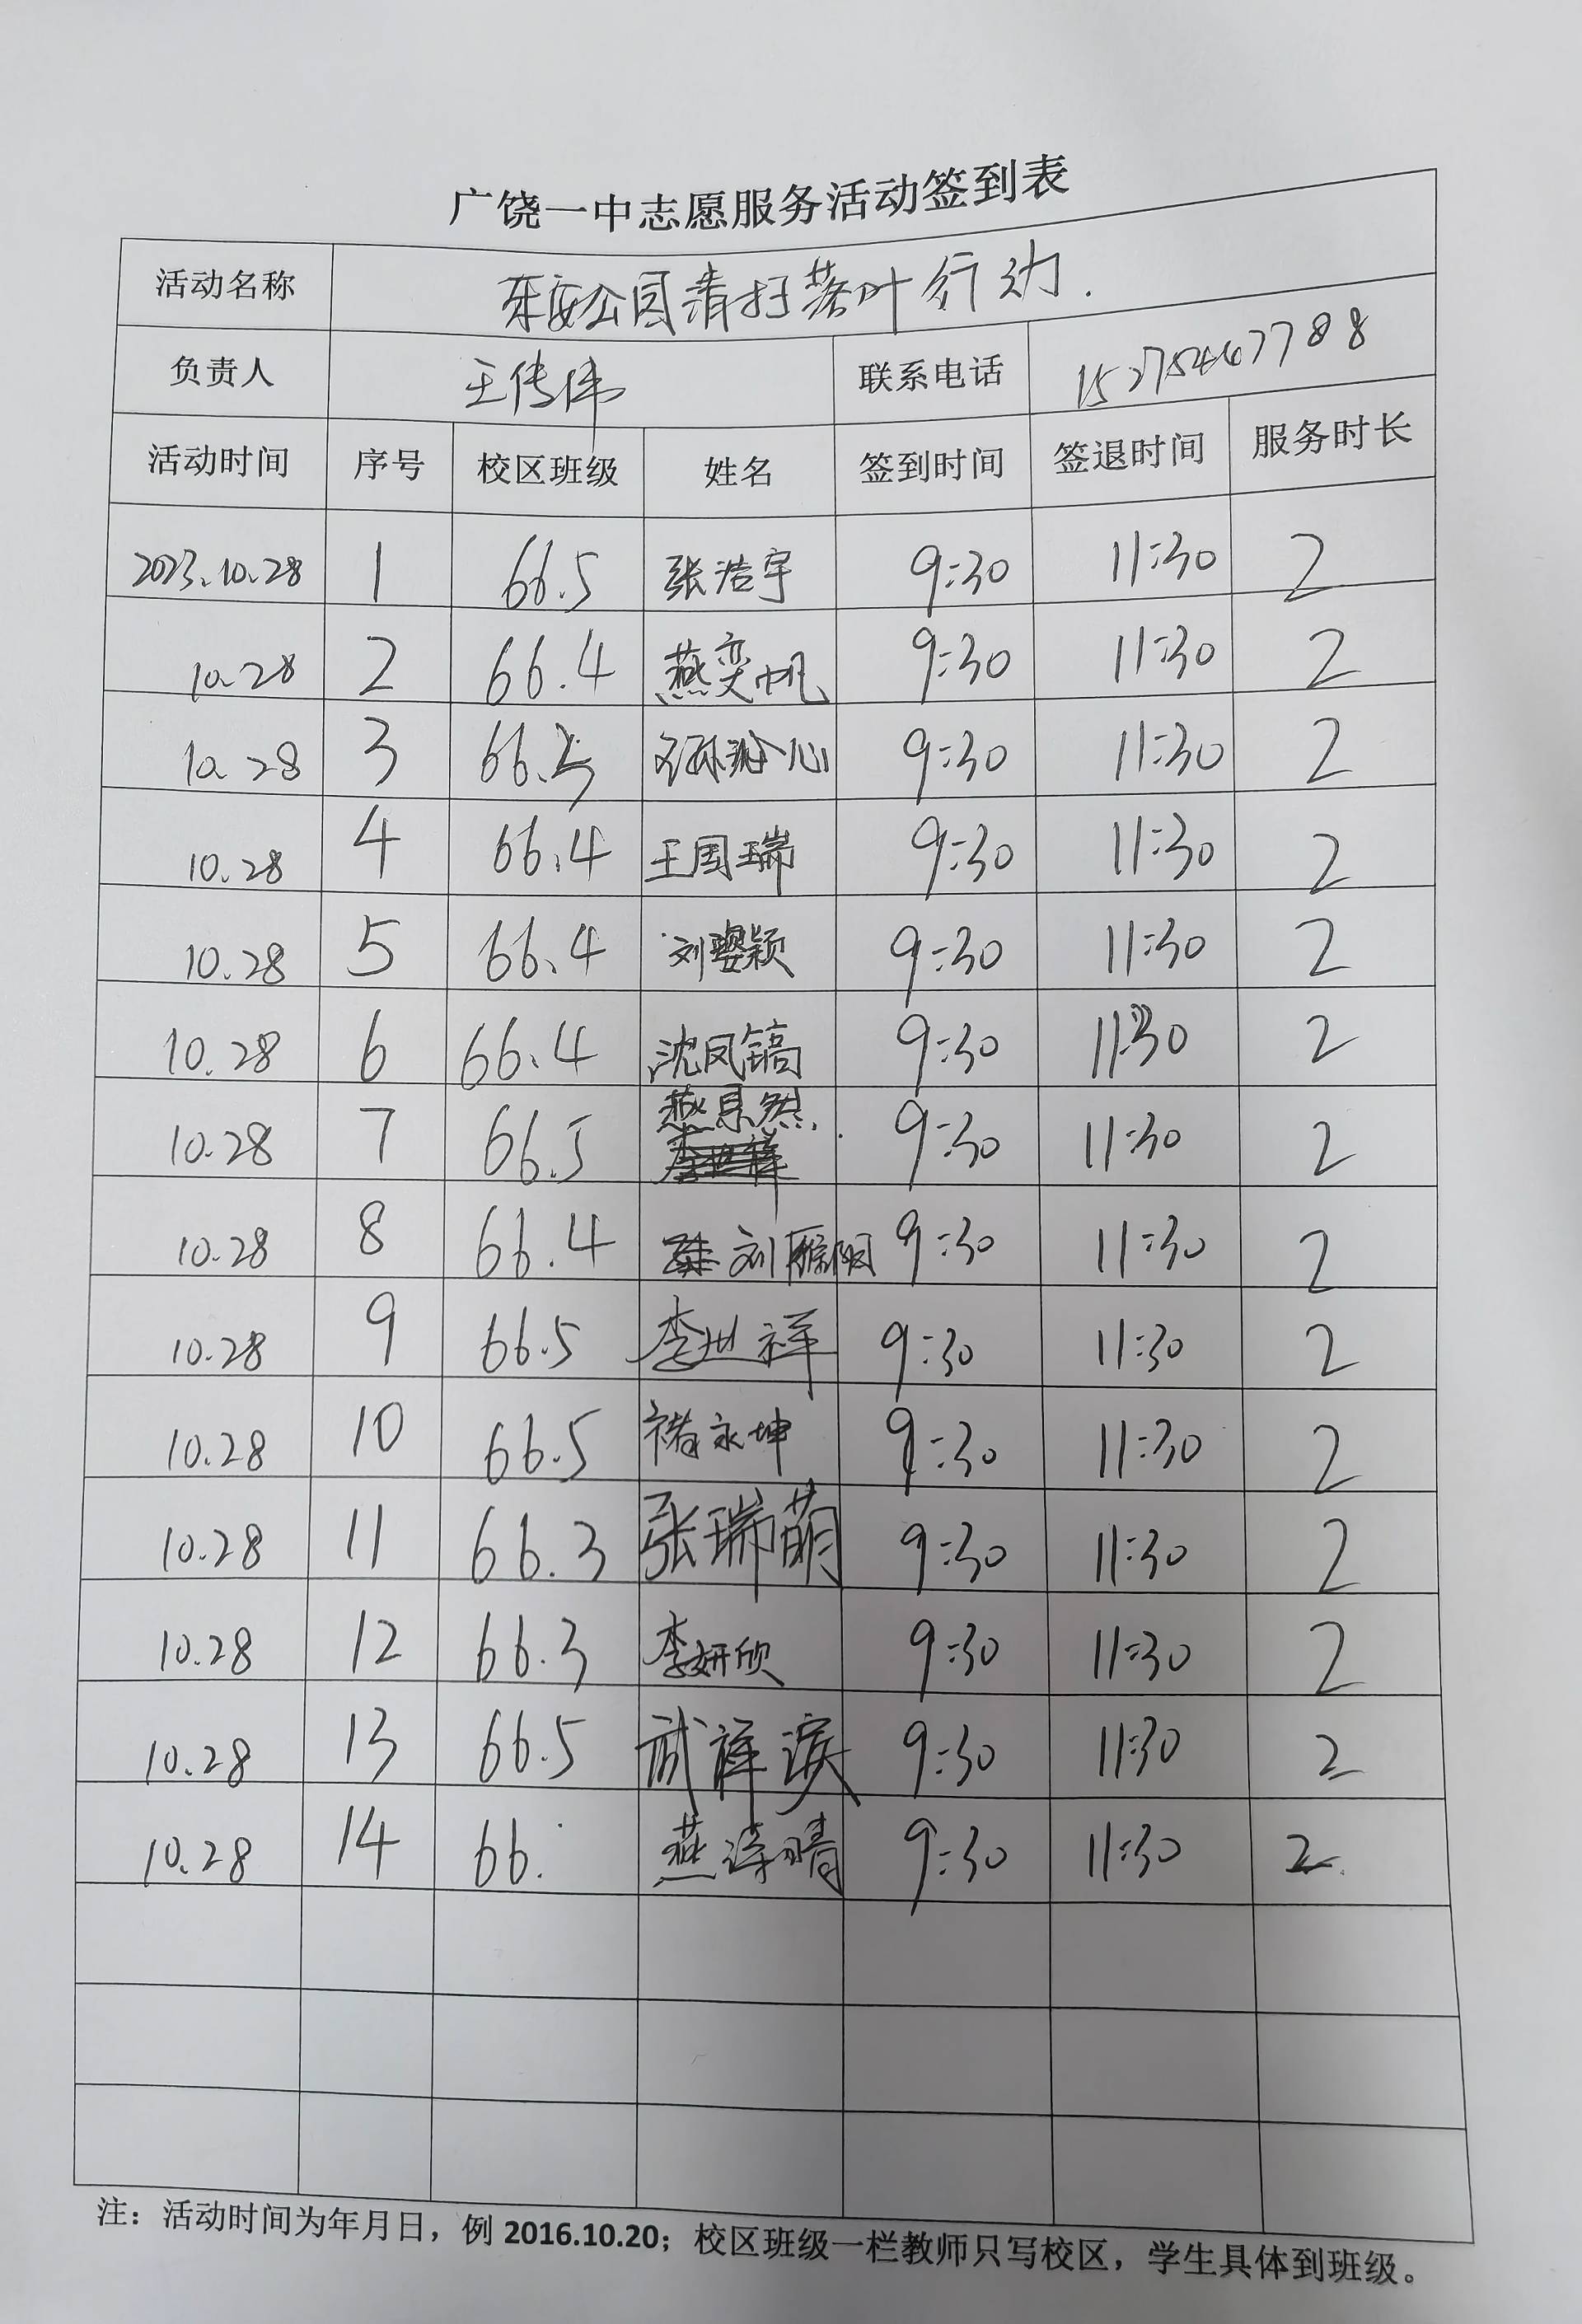 广饶一中志愿服务活动签到表
活动名称 乐安公园清扫落叶行动.
负责人 王传伟 联系电话 15275467788
活动时间 序号 校区班级 姓名 签到时间 签退时间 服务时长
2023.10.28 1 66.5 张浩宇 9:30 11:30 2
10.28 2 66.4 燕奕帆 9:30 11:30 2
10.28 3 66.5 9:30 11:30 2
10.28 4 66.4 王国瑞 9:30 11:30 2
10.28 5 66.4 刘婴颖 9:30 11:30 2
10.28 6 66.4 沈凤镐 9:30 11:30 2
10.28 7 66.5 燕昊然 9:30 11:30 2
10.28 8 66.4 刘雁阳 9:30 11:30 2
10.28 9 66.5 李世祥 9:30 11:30 2
10.28 10 66.5 褚永坤 9:30 11:30 2
10.28 11 66.3 张瑞萌 9:30 11:30 2
10.28 12 66.3 李妍欣 9:30 11:30 2
10.28 13 66.5 武祥滨 9:30 11:30 2
10.28 14 66. 燕诗晴 9:30 11:30 2
注：活动时间为年月日，例 2016.10.20；校区班级一栏教师只写校区，学生具体到班级。